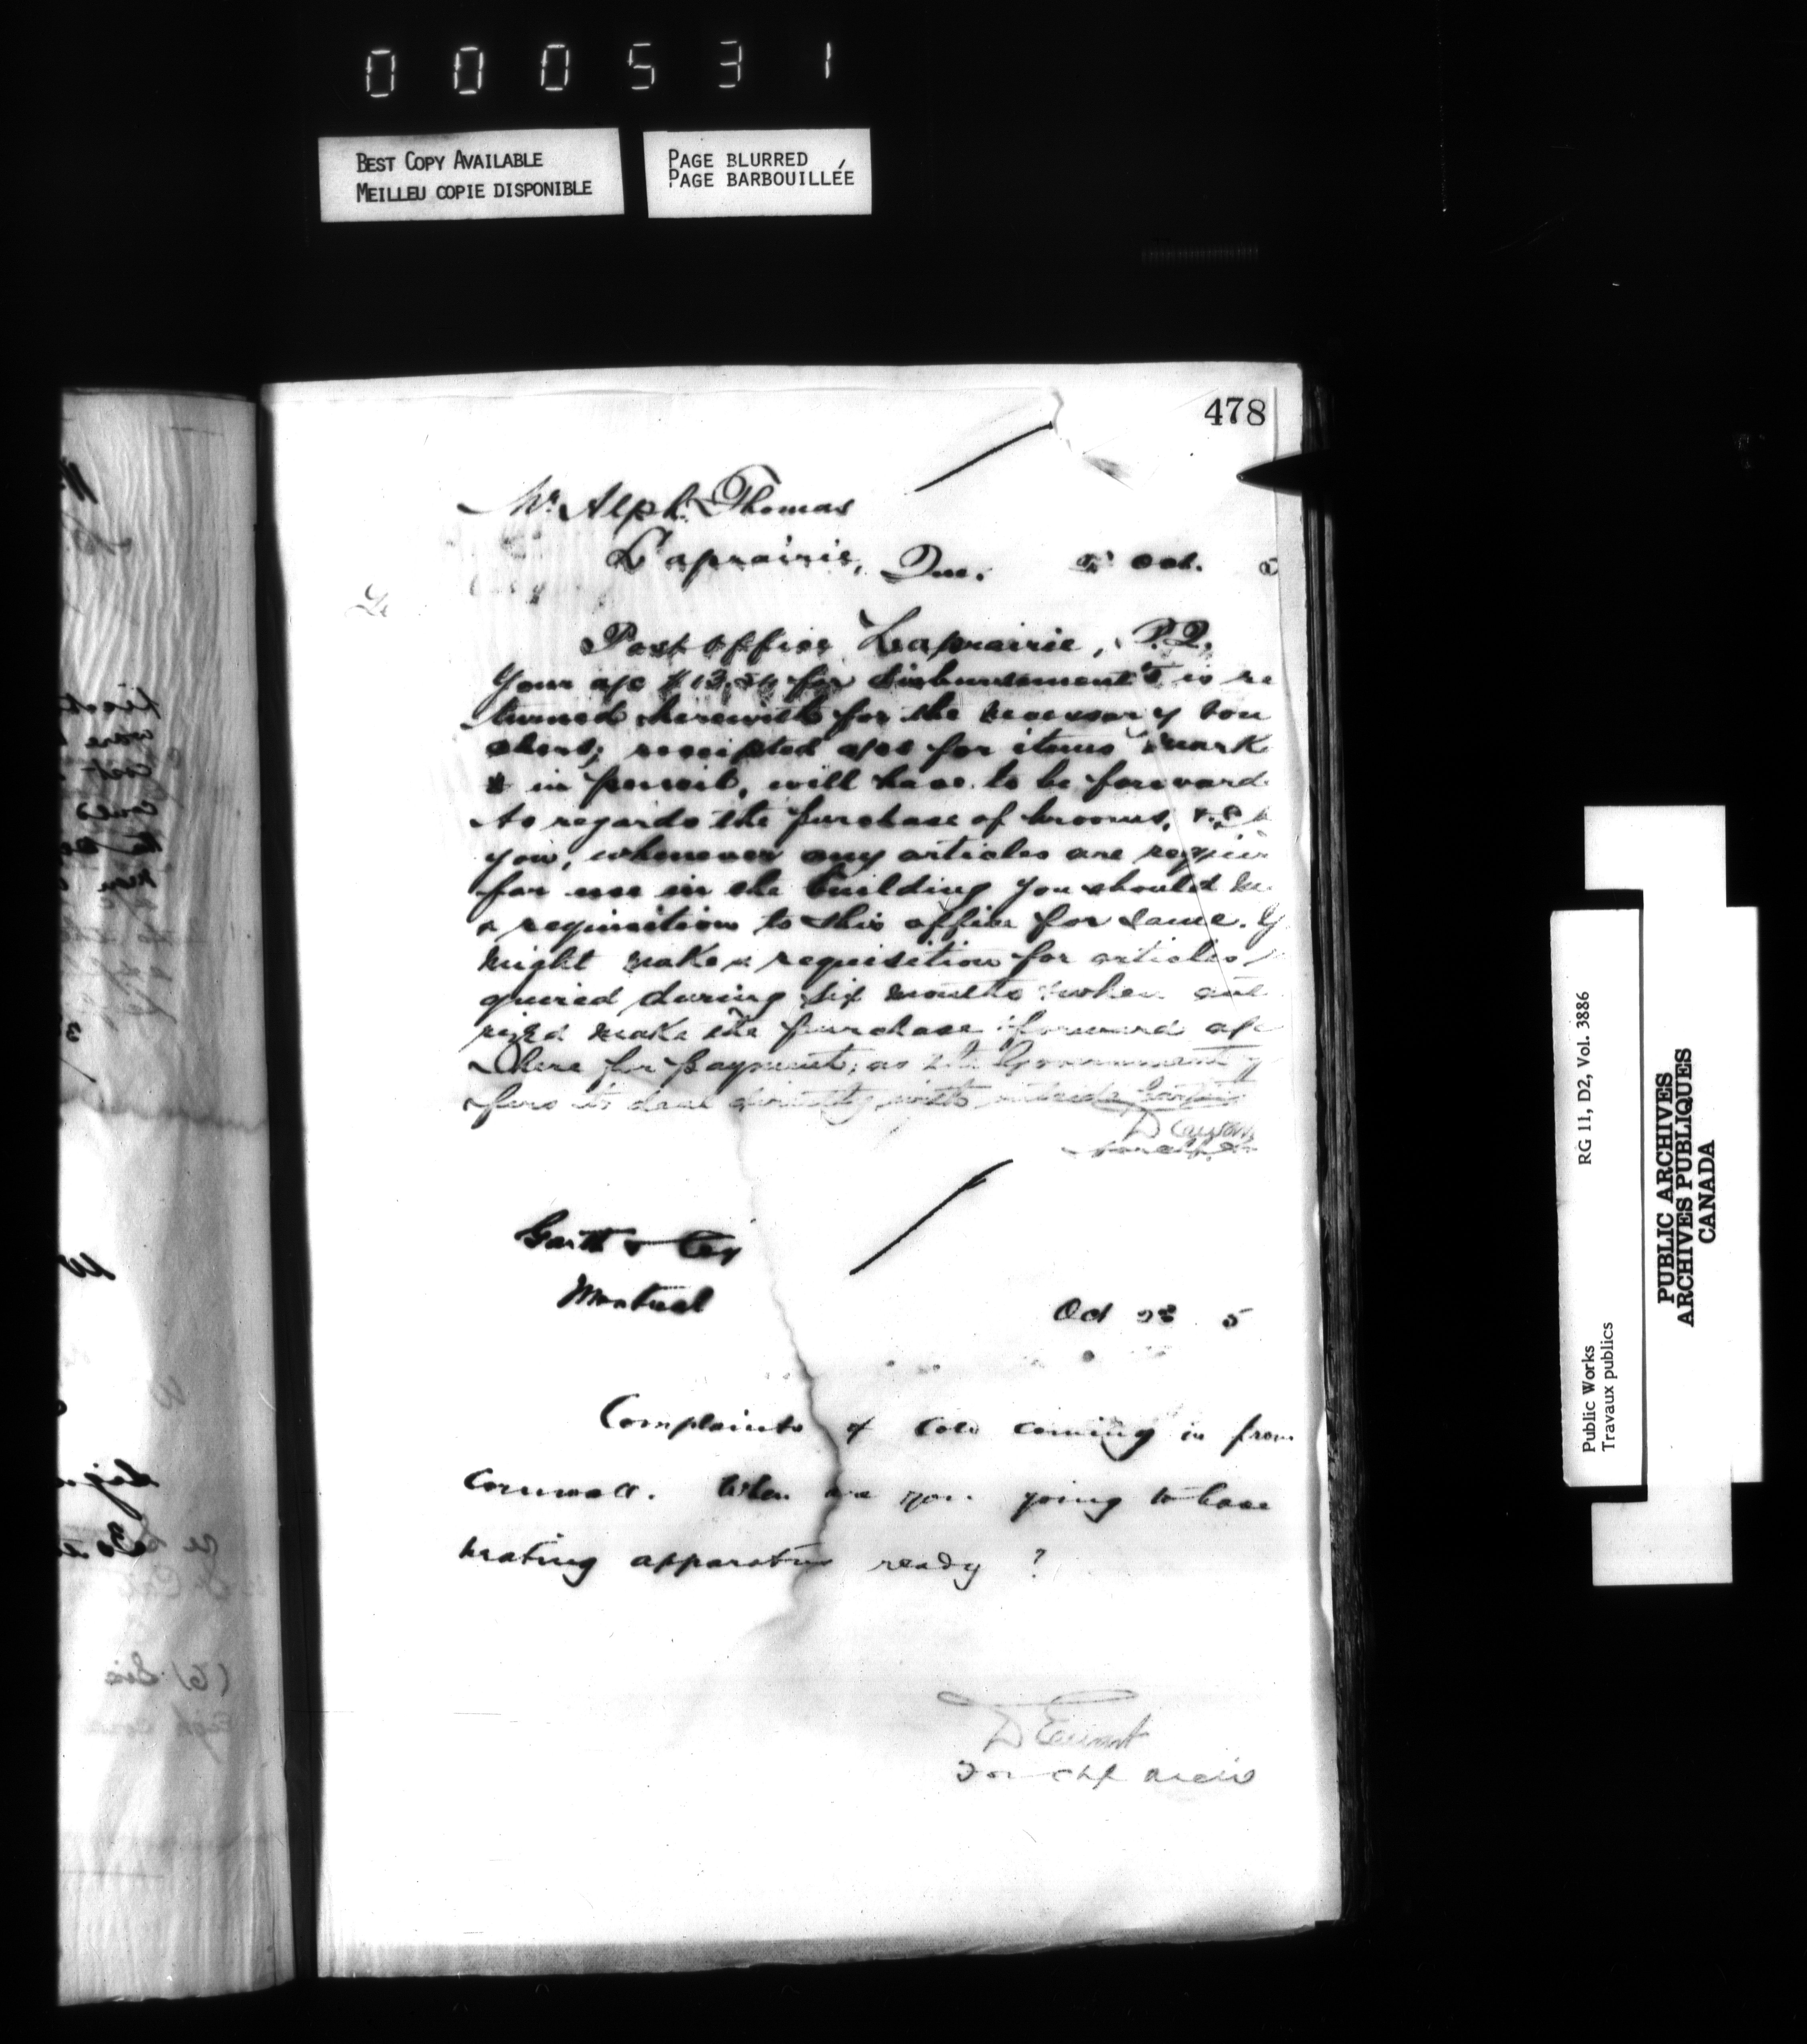 000531
BEST COPY AVAILABLE
MEILLEU COPIE DISPONIBLE
PAGE BLURRED
PAGE BARBOUILLÉE
478
Mr. Alph. Thomas
Laprairie, Que. Oct. 5
Post office Laprairie, P.Q.
Your a/c $13. for disbursements is re
turned herewith for the necessary vou
chers; receipted a/cs for items mark
in pencil, will have to be forward
As regards the purchase of brooms,
you, whenever any articles are requir
for use in the building you should
a requisition to this office for same. Y
might make a requisition for articles
quired during six months & when aut
rized make the purchase & forward a/c
here for payment, as the Government
fers to deal directly with outside parties
D Ewart
Garth & Coy
Montreal
Oct 23 5
Complaints of cold coming in from
Cornwall. When are you going to have
heating apparatus ready ?
D Ewart
For Chf Archt
Public Works
Travaux publics
RG 11, D2, Vol. 3886
PUBLIC ARCHIVES
ARCHIVES PUBLIQUES
CANADA